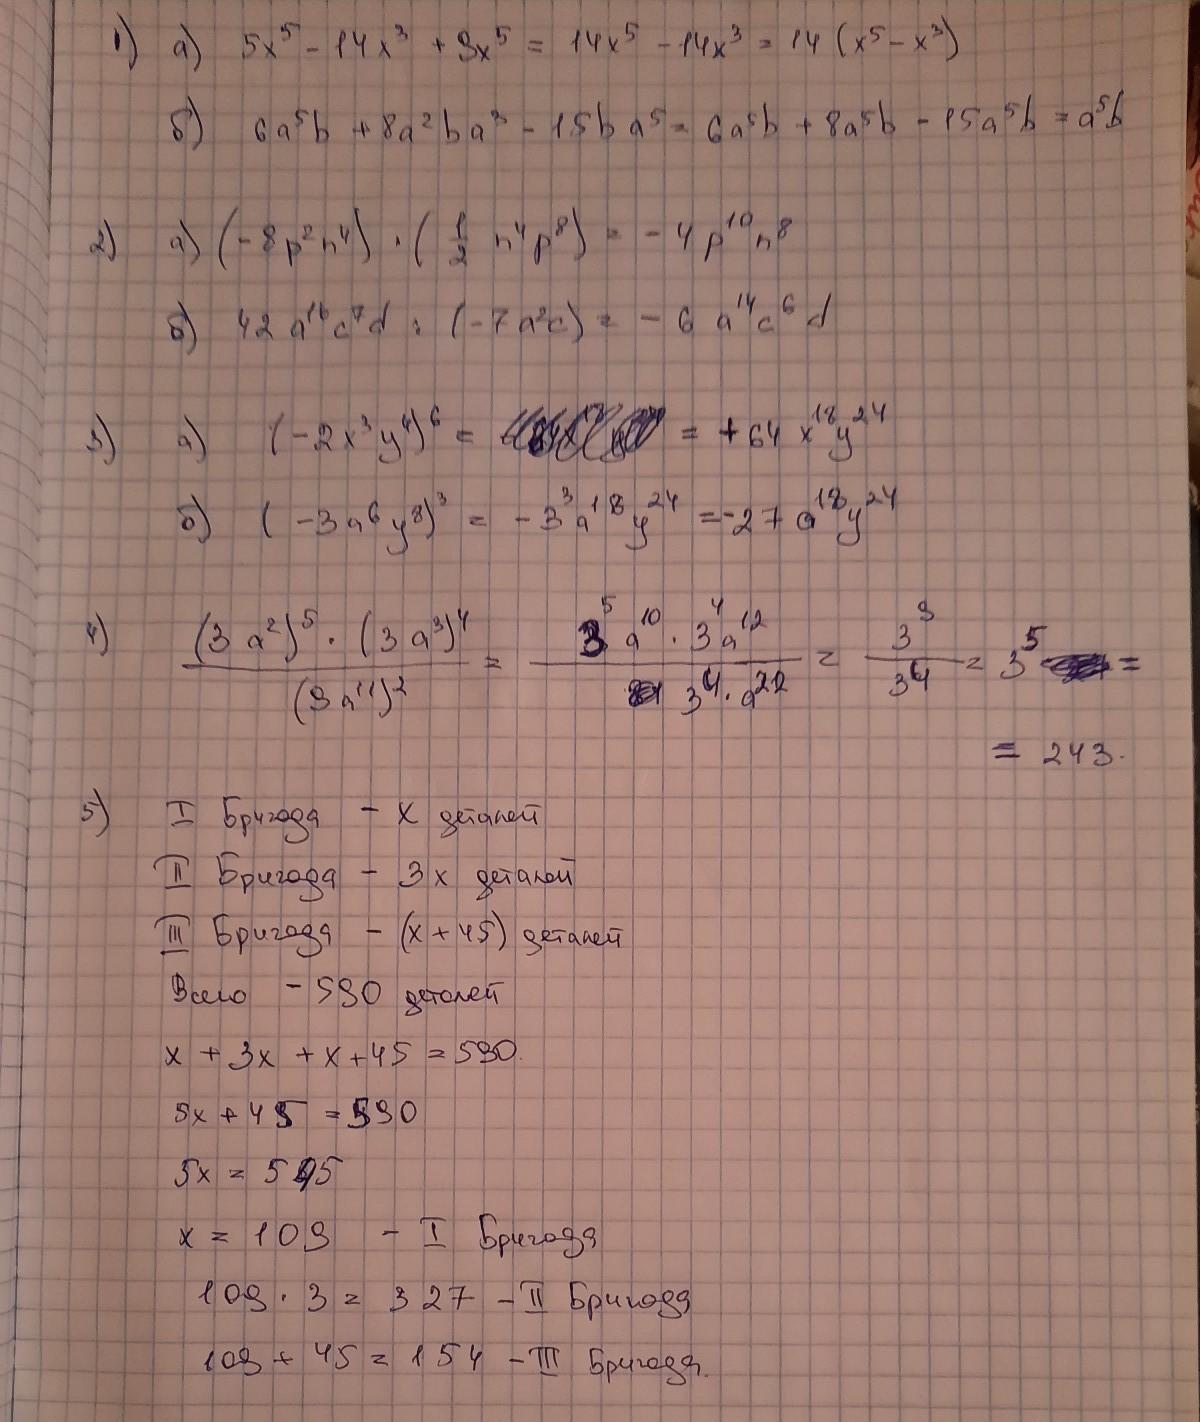 1) а) 5x⁵ - 14x³ + 9x⁵ = 14x⁵ - 14x³ = 14 (x⁵ - x³)
б) 6a⁵b + 8a²ba³ - 15ba⁵ = 6a⁵b + 8a⁵b - 15a⁵b = a⁵b
2) а) (-8p²n⁴) · (1/2 n⁴p⁸) = -4p¹⁰n⁸
б) 42a¹⁶c⁷d : (-7a²c) = -6a¹⁴c⁶d
3) а) (-2x³y⁴)⁶ = = +64x¹⁸y²⁴
б) (-3a⁶y⁸)³ = -3³a¹⁸y²⁴ = -27a¹⁸y²⁴
4) (3a²)⁵ · (3a³)⁴ / (9a¹¹)² = 3⁵a¹⁰ · 3⁴a¹² / 3⁴ · a²² = 3⁹ / 3⁴ = 3⁵ =
= 243.
5) I Бригада - x деталей
II Бригада - 3x деталей
III Бригада - (x + 45) деталей
Всего - 590 деталей
x + 3x + x + 45 = 590.
5x + 45 = 590
5x = 545
x = 109 - I Бригада
109 · 3 = 327 - II Бригада
109 + 45 = 154 - III Бригада.